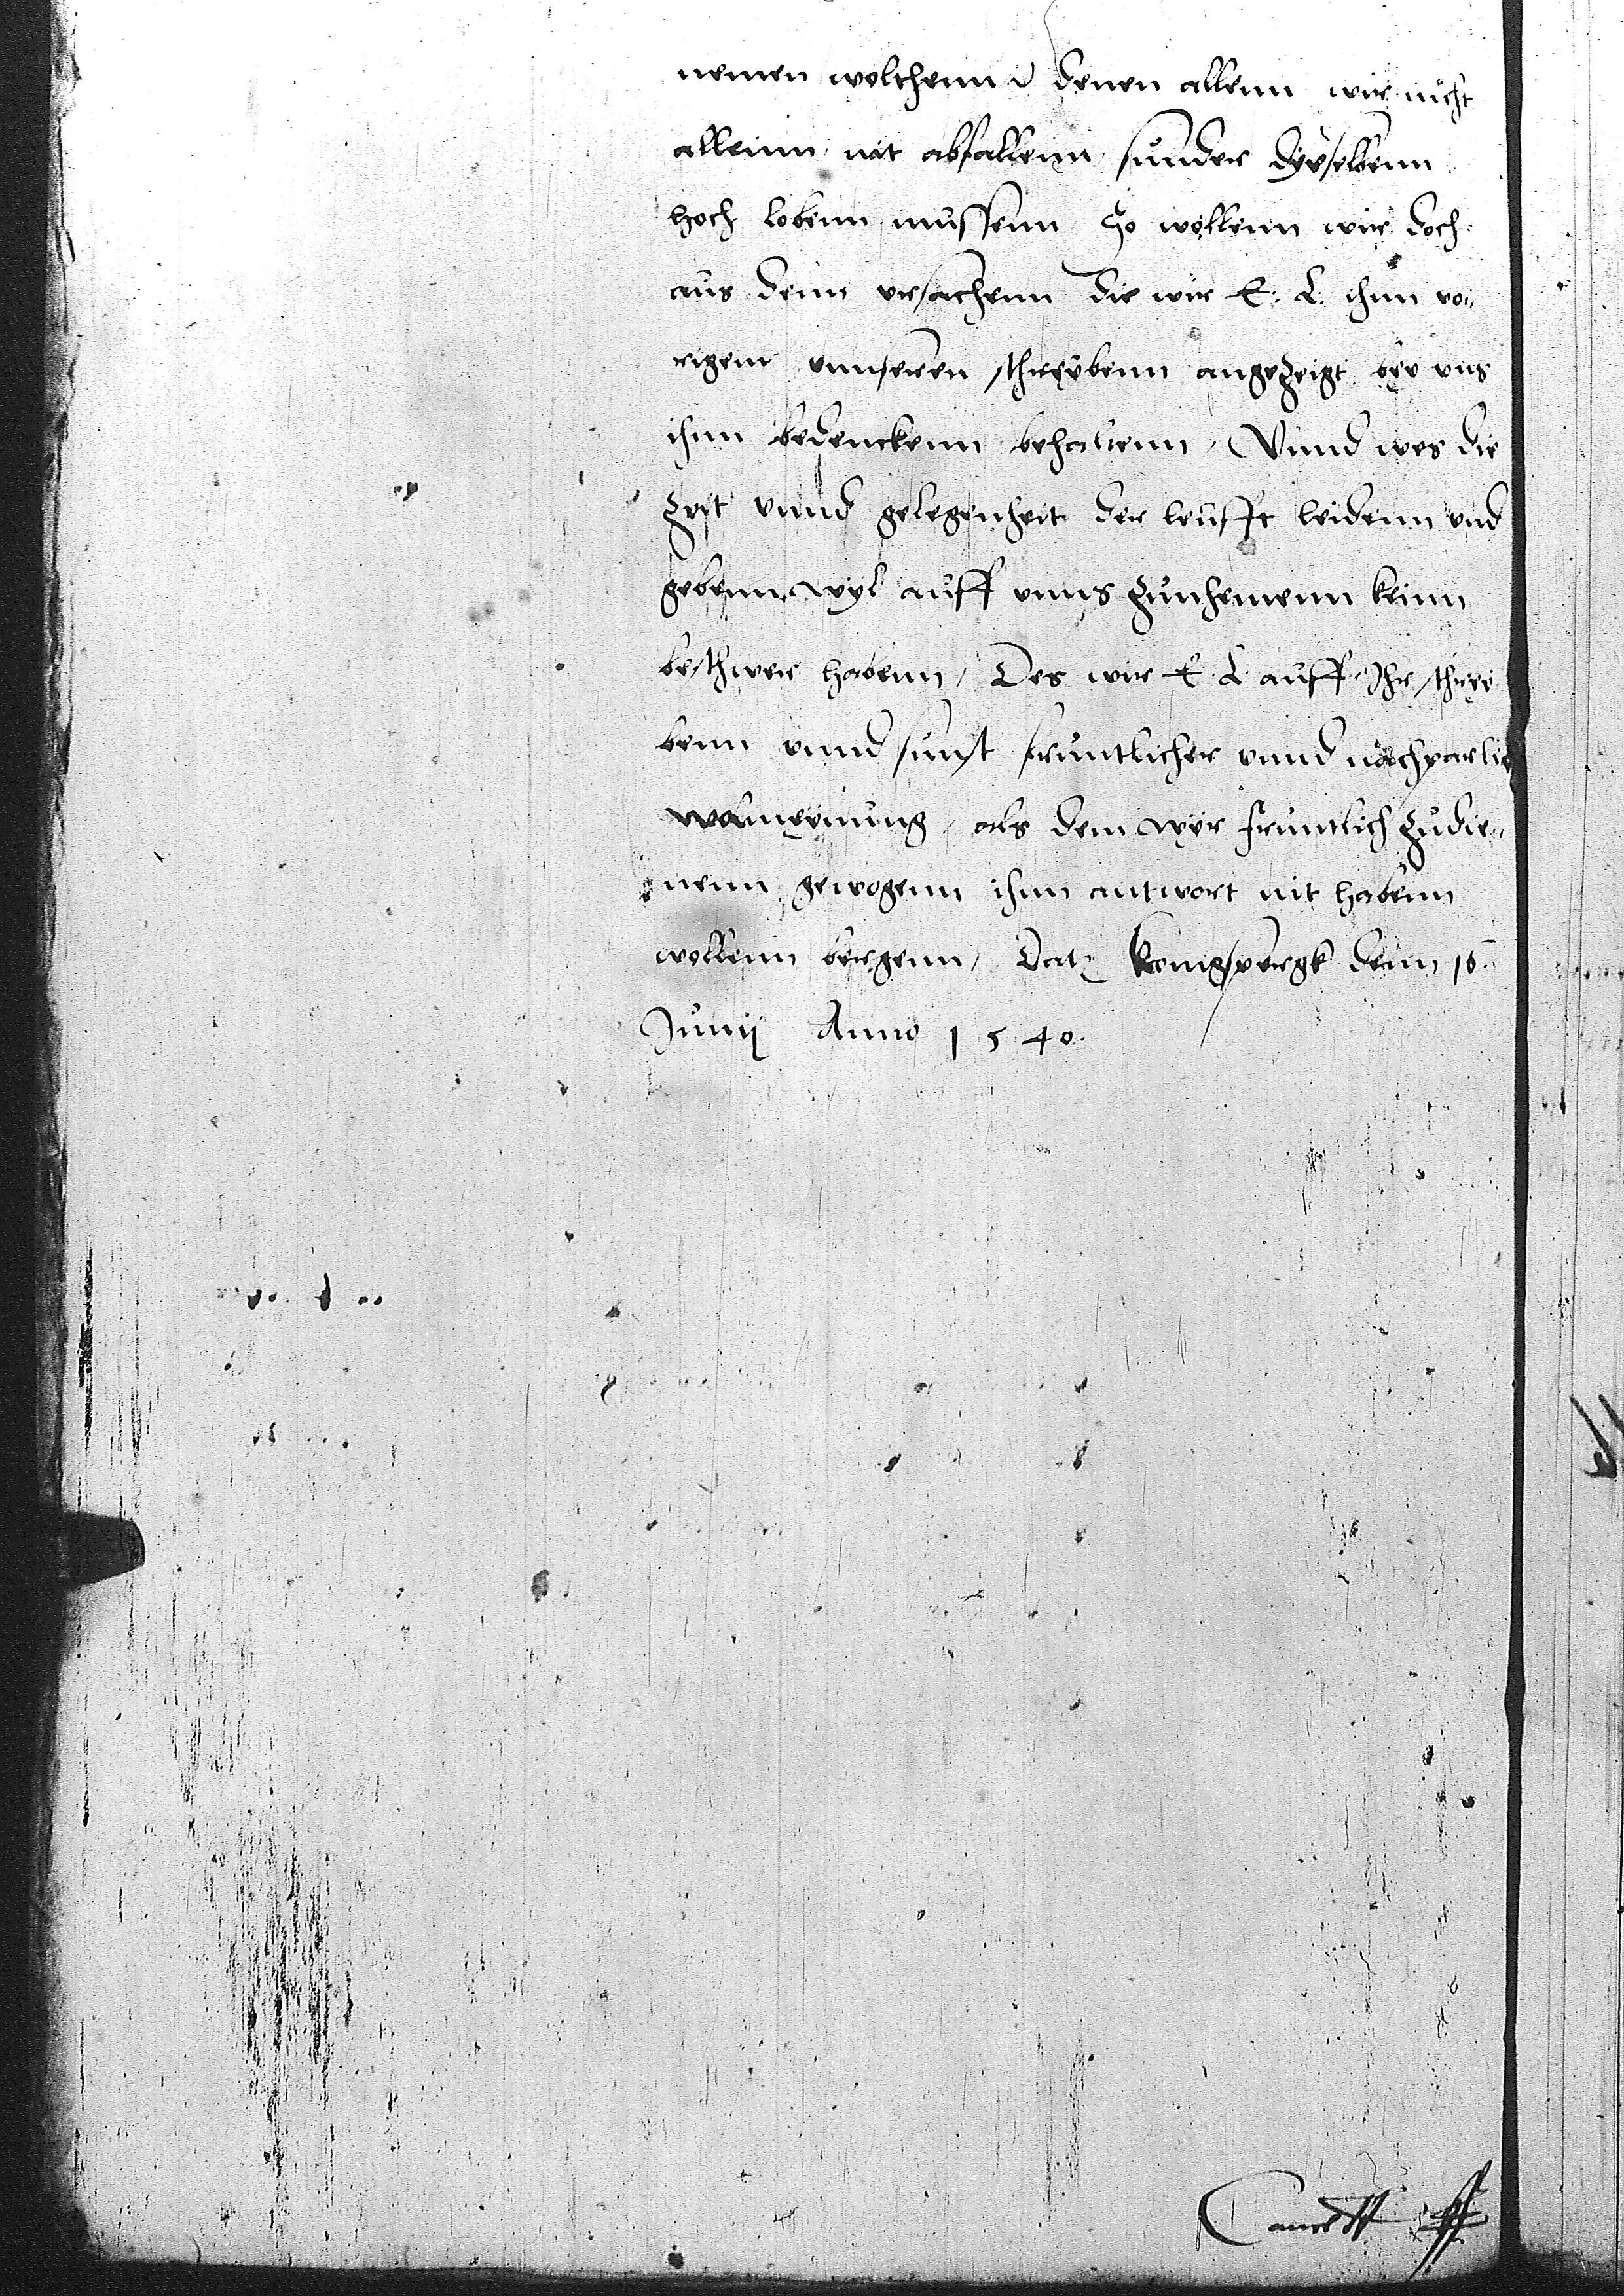 nemen welchenn denen allenn wir nicht
alleinn nit abfallenn sunder dyeselbenn
hoch lobenn mussenn So wollenn wir doch
aus denn ursachenn die wir E. L. ihnn vo„
rigem unnseren schreybenn angezeigt bey uns
ihnn bedenckenn behaltenn, Unnd wes die
Zeit unnd gelegenheit der leufft leidenn und
gebenn wyl auff unns zunhemenn keinn
beschwer habenn, Des wir E L auff Ihr schrey
benn unnd sunst fruntlicher unnd nachparlich
wolmeynung, als dem wyr fruntlich zudie„
nenn gewogenn ihnn antwort nit habenn
wollenn bergenn, Dat Konigspergk denn 16.
Junij Anno 1540.